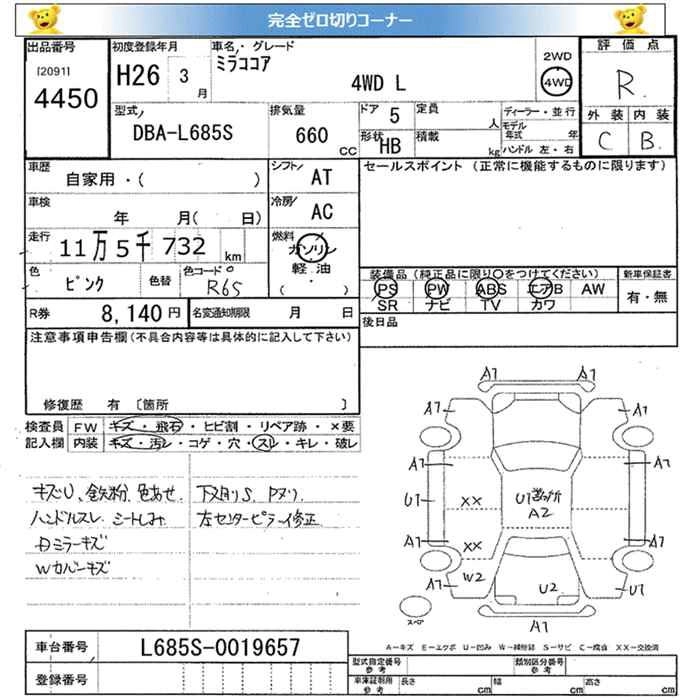 完全ゼロ切りコーナー
出品番号
[2091]
4450
初度登録年月
H26 3 月
車名・グレード
ミラココア
4WD L
2WD
4WD
評価点
R
外装 内装
C B
型式
DBA-L685S
排気量
660 CC
ドア 5
形状 HB
定員 人
積載 kg
ディーラー・並行
モデル年式 年
ハンドル 左・右
車歴
自家用・( )
シフト AT
セールスポイント (正常に機能するものに限ります)
車検
年 月( 日)
冷房 AC
走行
11万5千732 km
燃料
ガソリン
軽油
( ・ )
色
ピンク
色替
色コード
R65
装備品 (純正品に限り○をつけてください)
PS PW ABS エアB AW
SR ナビ TV カワ
新車保証書
有・無
R券 8,140円
名変通知期限 月 日
後日品
注意事項申告欄 (不具合内容等は具体的に記入して下さい)
修復歴 有 〔箇所 〕
検査員記入欄
FW キズ・飛石・ヒビ割・リペア跡・×要
内装 キズ・汚レ・コゲ・穴・スレ・キレ・破レ
キズU、鉄粉、色あせ
ハンドルスレ シートしみ
Dミラーキズ
Wカバーキズ
下メ削リS. Pヌリ.
左センターピラー修正
A1 A1
A1 A1
A1 A1
U1 XX U1 A2
A1 XX A1
A1 W2 U2 U1
A1
スペア
A-キズ E-エクボ U-凹み W-補修跡 S-サビ C-腐食 XX-交換済
車台番号 L685S-0019657
登録番号
型式指定番号 参考
類別区分番号 参考
車庫証明用 参考
長さ cm 幅 cm 高さ cm